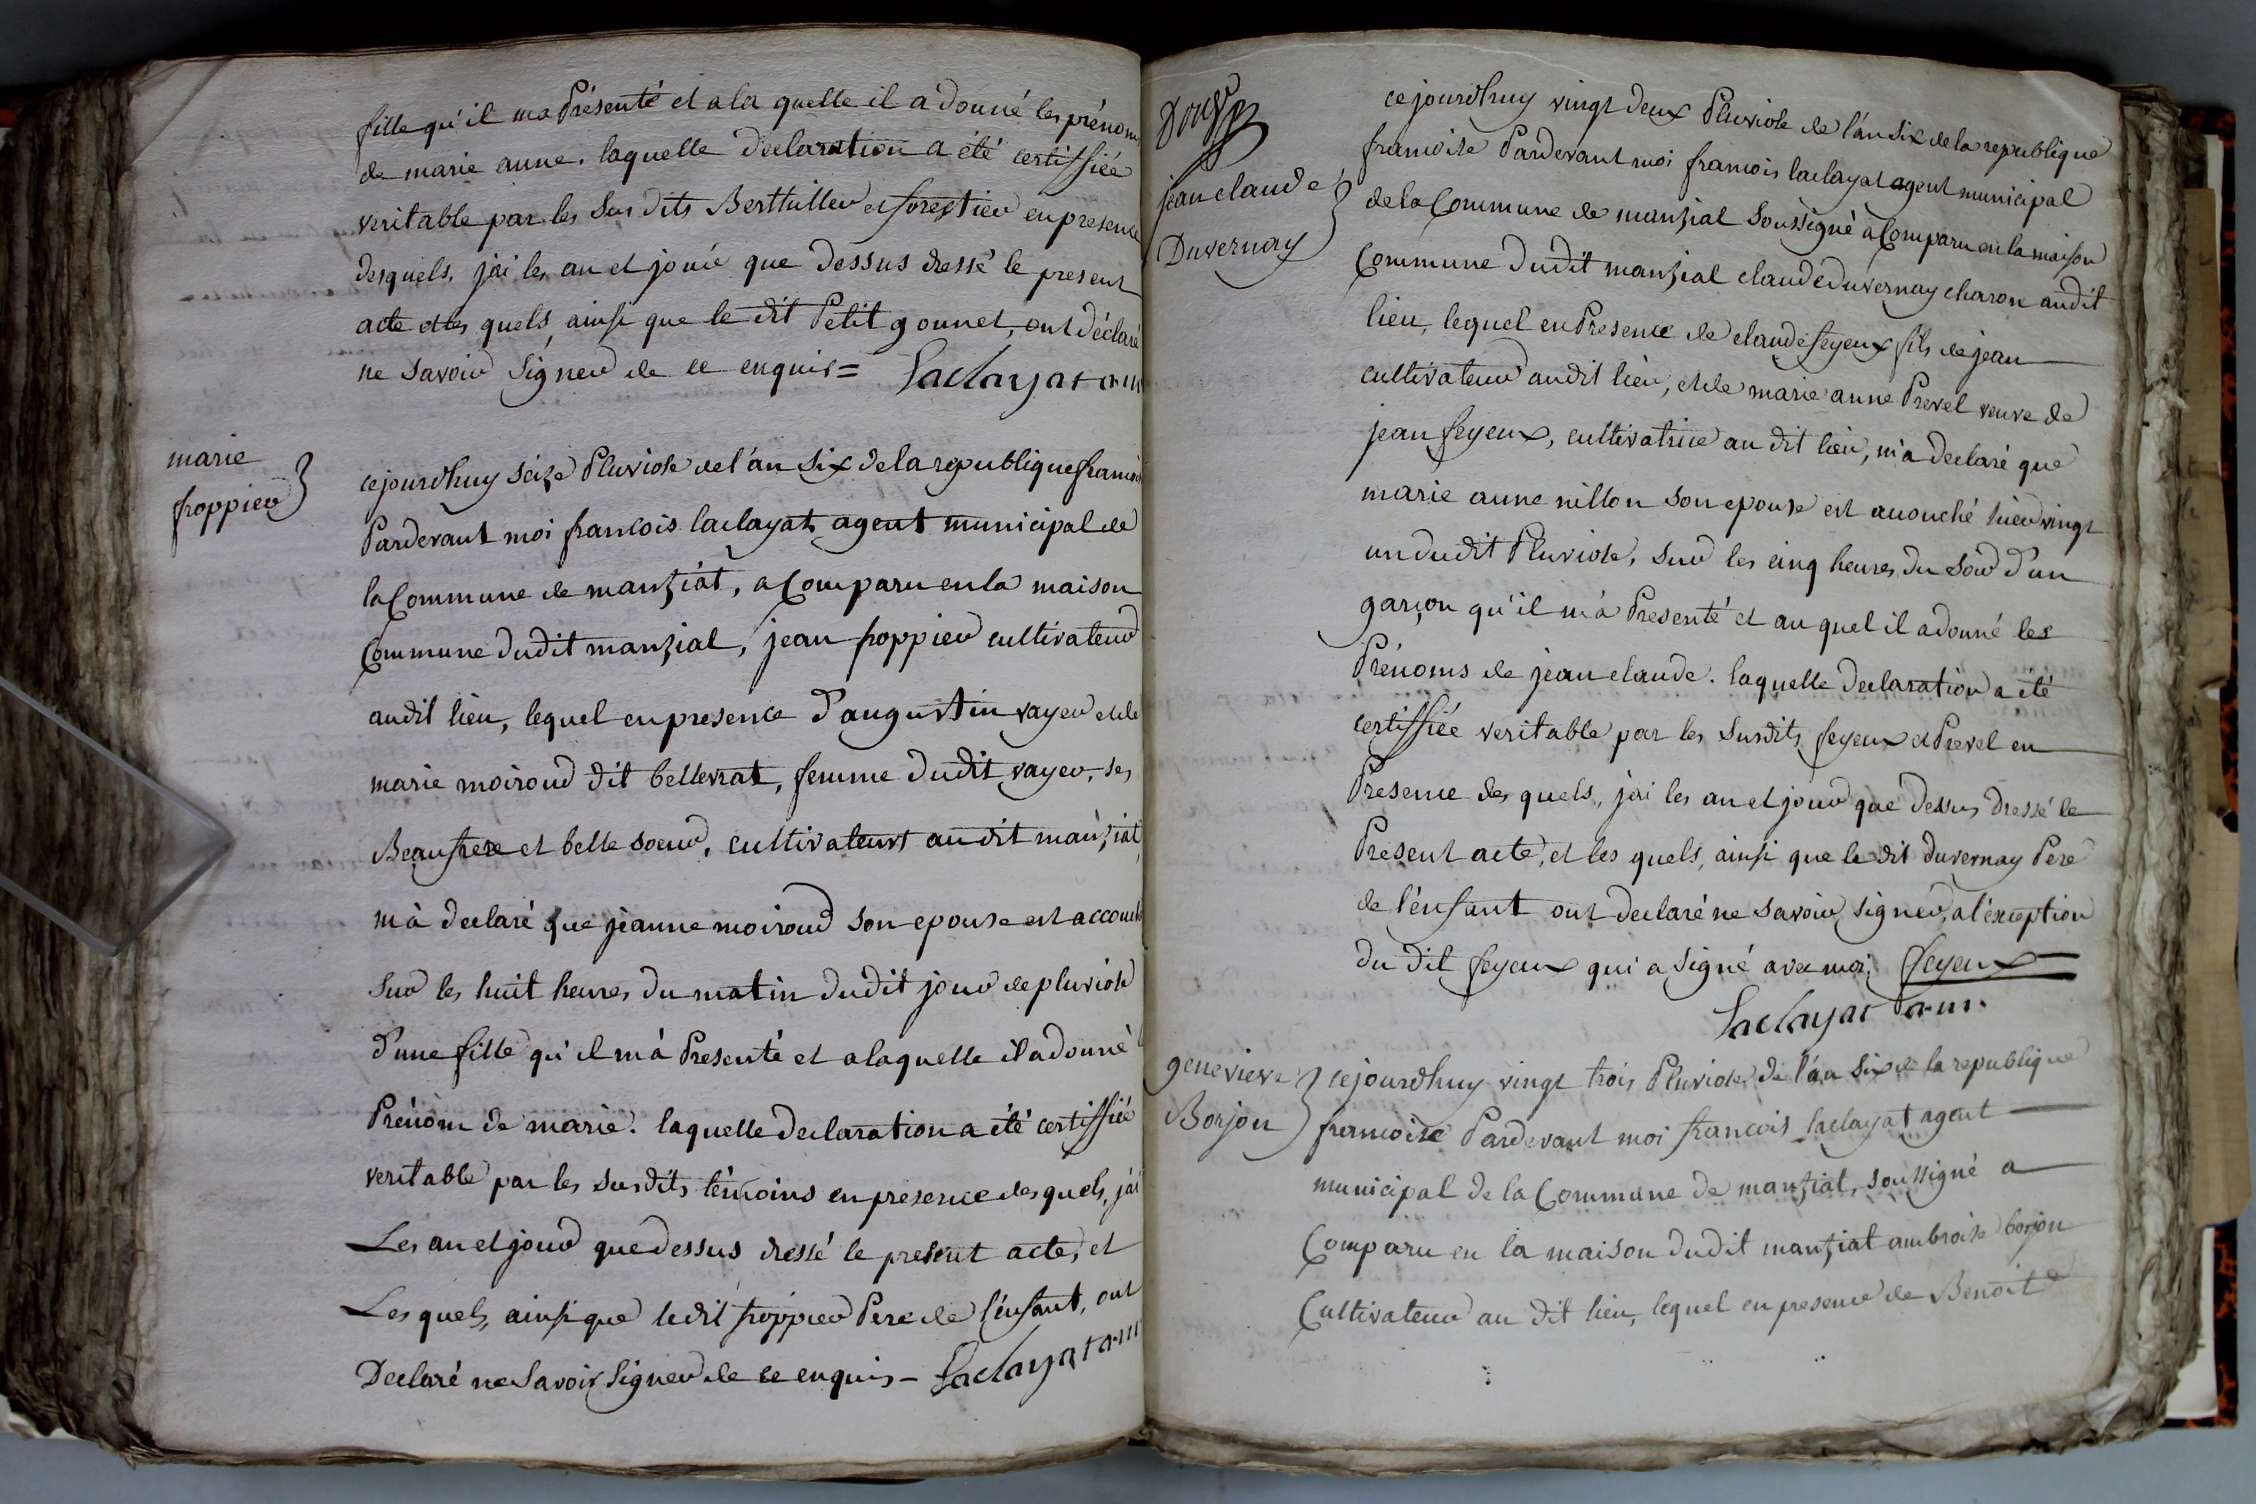 fille qu'il ma Présenté et a la quelle il a donné les prénoms
de marie anne. laquelle declaration a été certiffiée
veritable par les Sus dits Berthiller et forestier en presence
desquels, jai les an et jour que dessus dressé le present
acte et les quels, ainsi que le dit Petit gonnet, ont déclaré
ne Savoir Signer de ce enquis = Laclayat a.m
marie
froppier
cejourd'huy seize Pluviose de l'an Six de la republique francoi
Pardevant moi francois laclayat agent municipal de
la Commune de mantziat, a Comparu en la maison
Commune dudit mantziat, jean froppier cultivateur
audit lieu, lequel en presence d'augustin vayer et de
marie moiroud dit bellevrat, femme dudit vayer, ses
Beaufrere et belle soeur, cultivateurs au dit mantziat,
m'à declaré que jeanne moiroud son epouse est accouch
Sur les huit heures du matin dudit jour de pluviose
d'une fille qu'il m'à Presenté et a laquelle il a donné
Prénom de marie. laquelle declaration a été certiffiée
veritable par les susdits témoins en presence desquels, j'ai
Les an et jour que dessus dressé le present acte, et
Les quels, ainsi que le dit froppier Pere de l'énfant, ont
Declaré ne Savoir Signer de ce enquis - Laclayat a.m
jean claude
Duvernay
cejourd'huy vingt deux Pluviose de l'an Six de la republique
francoise Pardevant moi francois laclayat agent municipal
de la Commune de mantziat Soussigné a Comparu en la maison
Commune dudit mantziat claude duvernay charon audit
lieu, lequel en Presence de claude feyeux fils de jean
cultivateur audit lieu, et de marie anne Prevel veuve de
jean feyeux, cultivatrice au dit lieu, m'a declaré que
marie anne nillon son epouse est acouché hier vingt
un dudit Pluviose, sur les cinq heures du soir d'un
garçon qu'il m'à Presenté et au quel il a donné les
Prénoms de jean claude. laquelle declaration a été
certiffiée veritable par les susdits feyeux et Prevel en
Presence des quels, jai les an et jour que dessus dressé le
Present acte, et les quels, ainsi que le dit duvernay Pere
de l'énfant ont declaré ne savoir signer, a l'exception
du dit feyeux qui a signé avec moi. feyeux
Laclayat a.m.
genevieve
Borjon
cejourd'huy vingt trois Pluviose de l'an six de la republique
francoise Pardevant moi francois laclayat agent
municipal de la Commune de mantziat, soussigné a
Comparu en la maison dudit mantziat ambroise borjon
Cultivateur au dit lieu, lequel en presence de Benoit